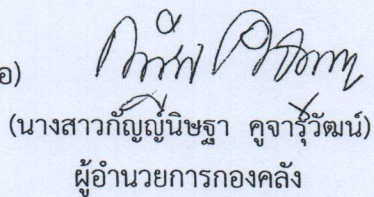 อ)
(นางสาวกัญญ์นิษฐา คูจารุวัฒน์)
ผู้อำนวยการกองคลัง